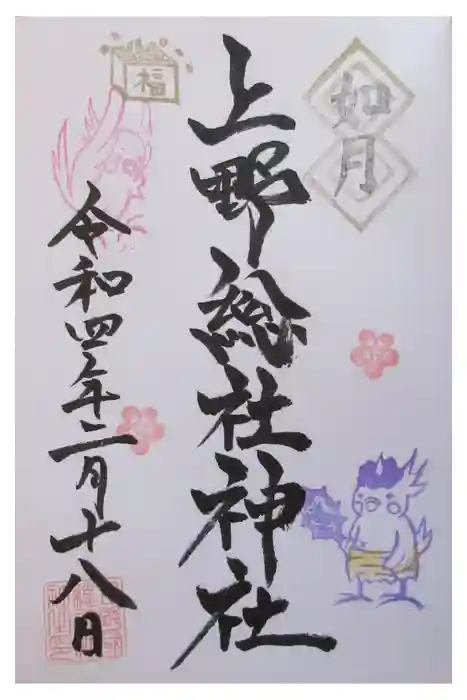 如月
上野総社神社
福
令和四年二月十八日